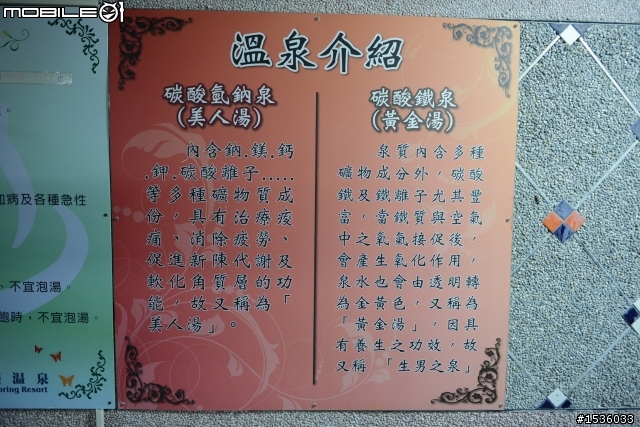 MOBILE01
溫泉介紹
碳酸氫鈉泉
(美人湯)
內含鈉.鎂.鈣
.鉀.碳酸離子.....
等多種礦物質成
份，具有治療痠
痛、消除疲勞、
促進新陳代謝及
軟化角質層的功
能，故又稱為「
美人湯」。
碳酸鐵泉
(黃金湯)
泉質內含多種
礦物成分外，碳酸
鐵及鐵離子尤其豐
富，當鐵質與空氣
中之氧氣接促後，
會產生氧化作用，
泉水也會由透明轉
為金黃色，又稱為
「黃金湯」，因具
有養生之功效，故
又稱 「生男之泉」
病及各種急性
、不宜泡湯。
飽時，不宜泡湯。
溫泉
Spring Resort
#1536033